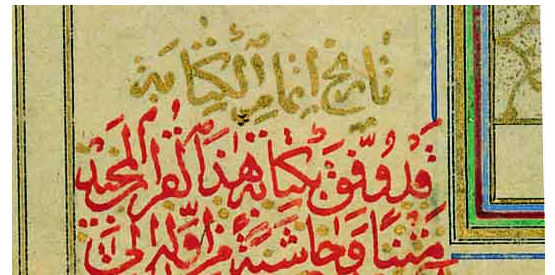 تاریخ اتمام الکتابه
قَد وُفِّقَ بِکِتابَةِ هٰذَا القُرآنِ المَجید
مَتناً وَ حاشیَةً مِن اَوَّلِه اِلی